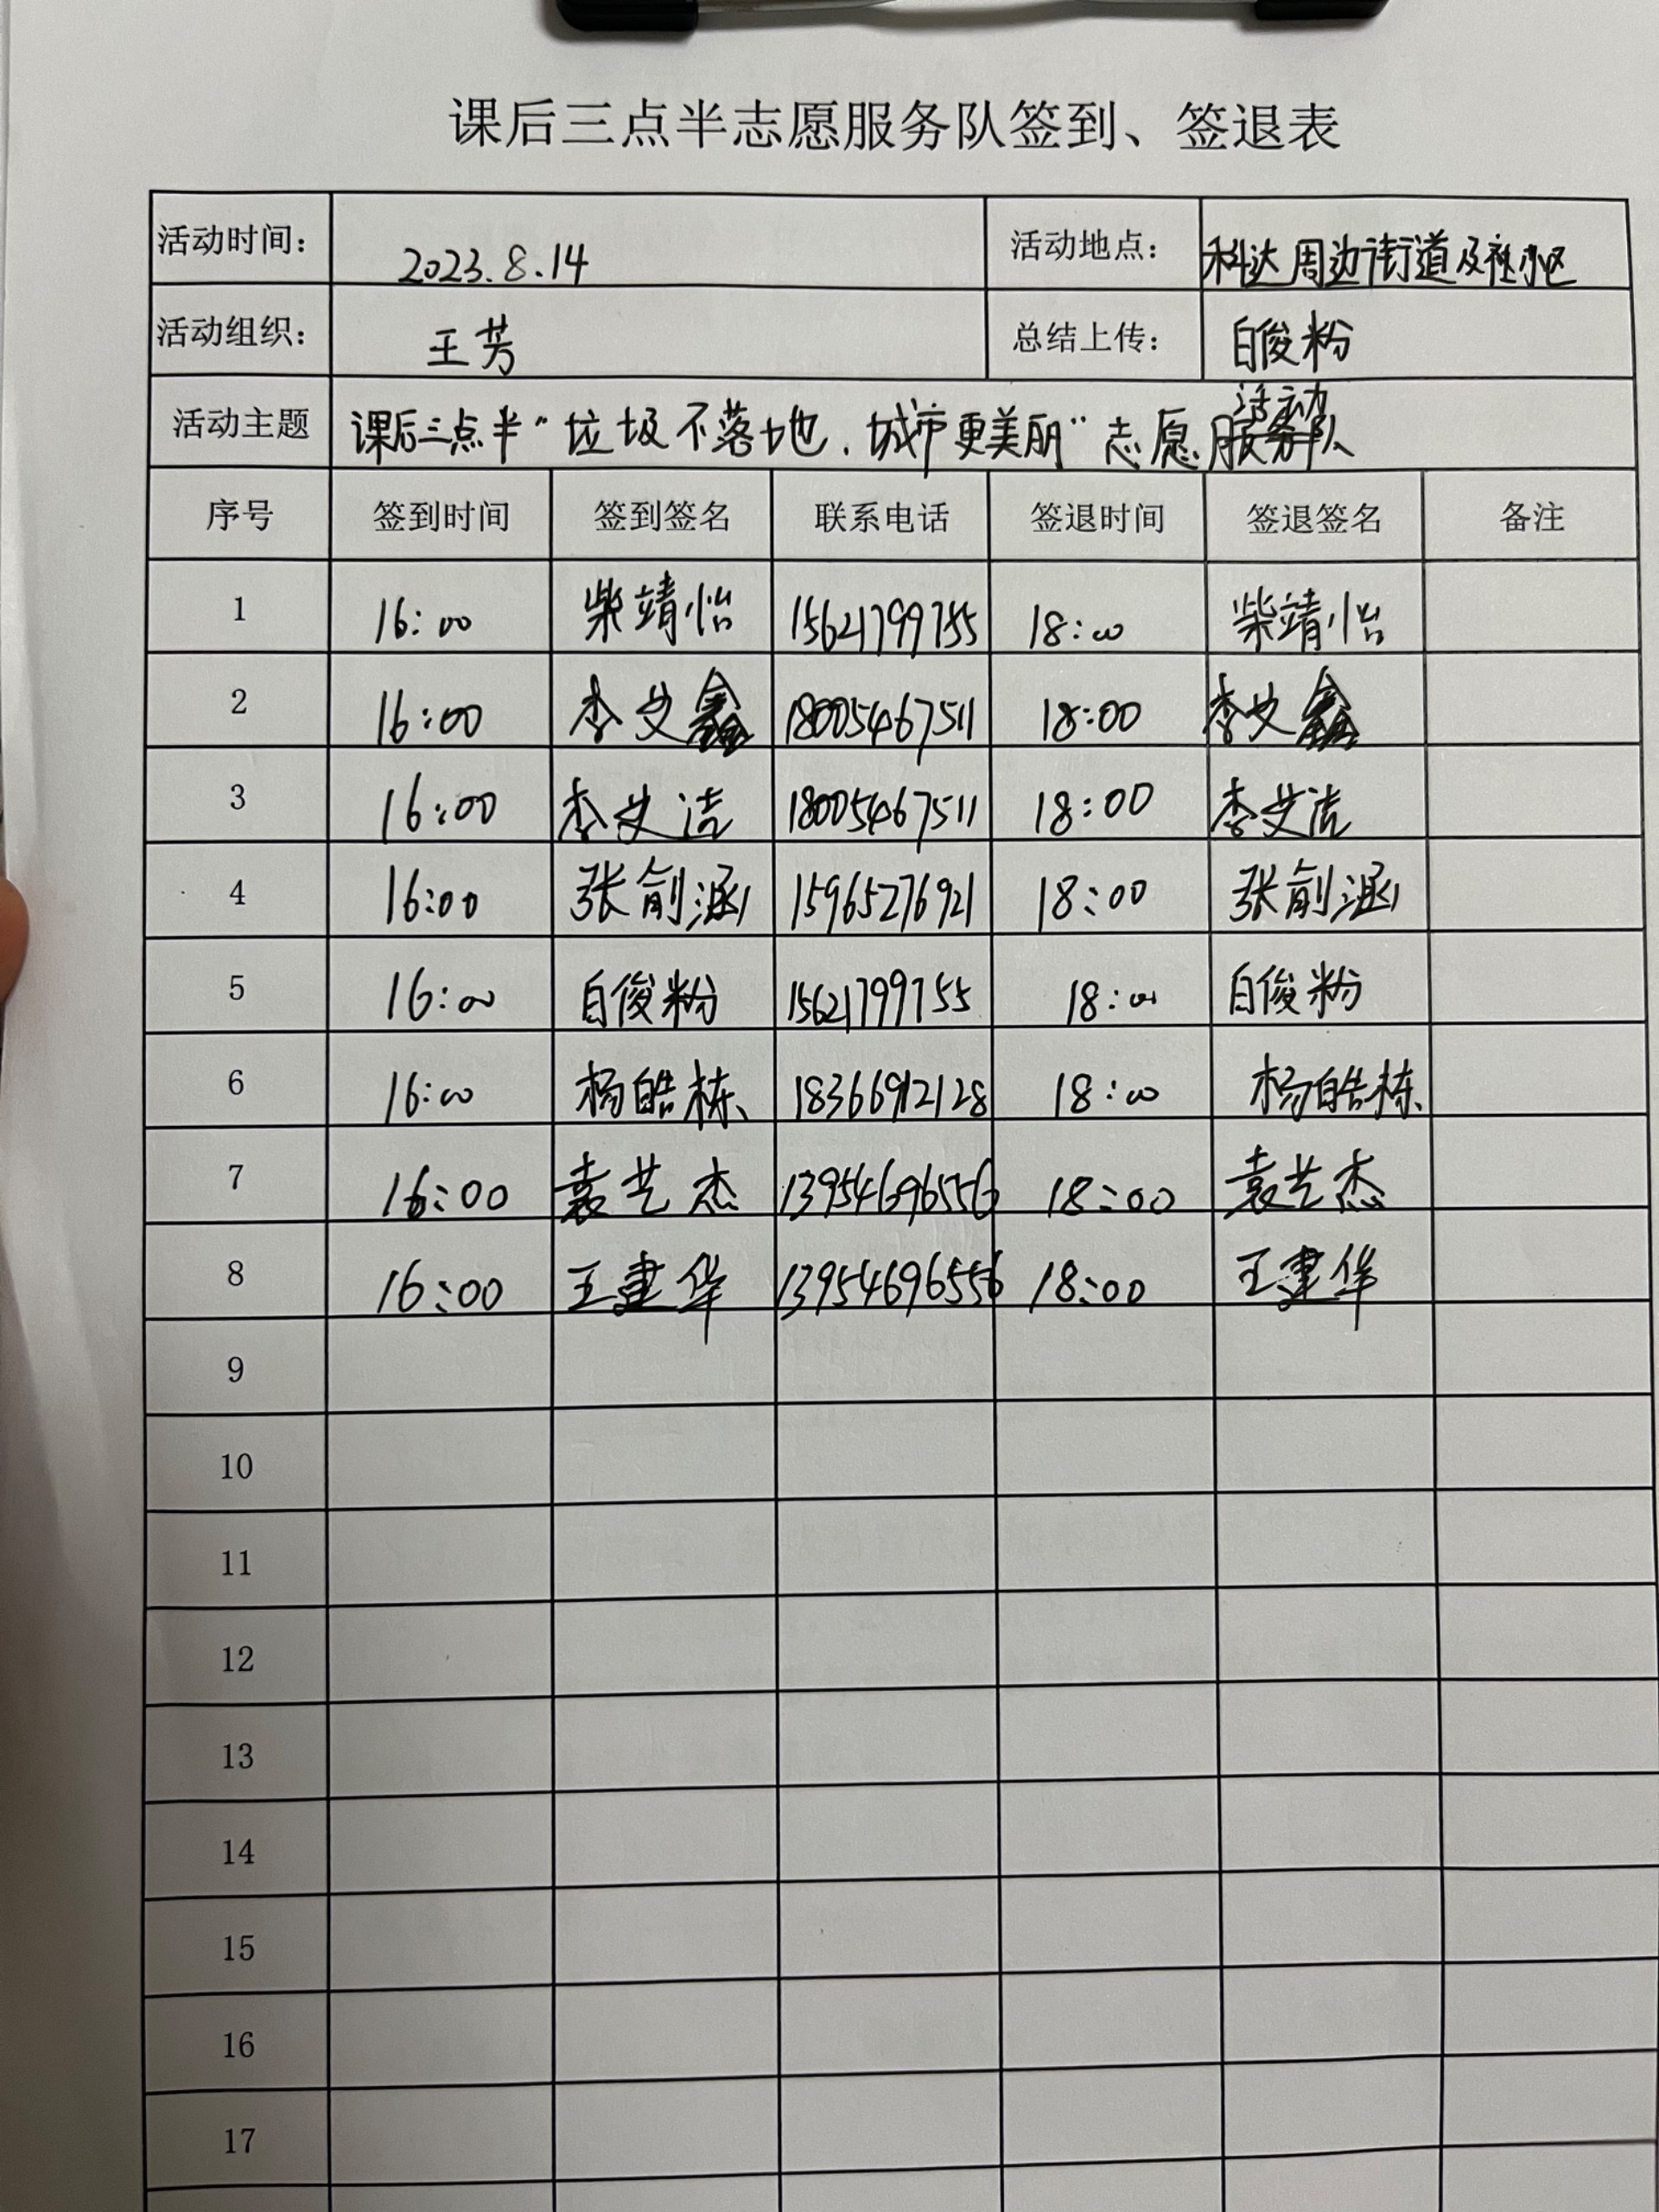 课后三点半志愿服务队签到、签退表
活动时间： 2023.8.14 活动地点： 科达周边街道及社小区
活动组织： 王芳 总结上传： 白俊粉
活动主题 课后三点半“垃圾不落地，城市更美丽”志愿活动
序号 签到时间 签到签名 联系电话 签退时间 签退签名 备注
1 16:00 柴靖怡 15621799755 18:00 柴靖怡
2 16:00 李文鑫 18005467511 18:00 李文鑫
3 16:00 李文洁 18005467511 18:00 李文洁
4 16:00 张俞涵 15965276921 18:00 张俞涵
5 16:00 白俊粉 15621799755 18:00 白俊粉
6 16:00 杨皓栋 18366912128 18:00 杨皓栋
7 16:00 袁艺杰 13954696556 18:00 袁艺杰
8 16:00 王建华 13954696556 18:00 王建华
9
10
11
12
13
14
15
16
17